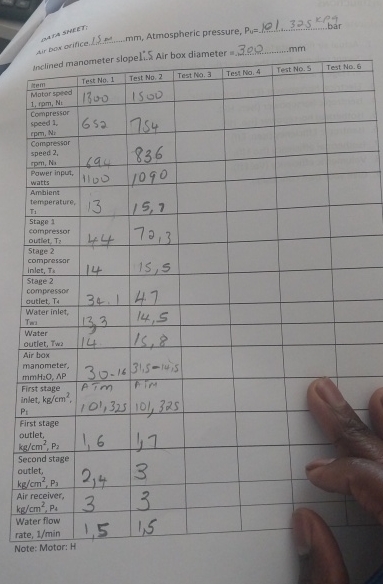 DATA SHEET:
Air box orifice 15 mm, Atmospheric pressure, Pa= 101.325 KPa bar
Inclined manometer slope 1:5 Air box diameter = 300 mm
Item Test No. 1 Test No. 2 Test No. 3 Test No. 4 Test No. 5 Test No. 6
Motor speed
1, rpm, N₁ 1300 1500
Compressor
speed 1, 652 754
rpm, N₂
Compressor
speed 2, 694 836
rpm, N₃
Power input, 1100 1090
watts
Ambient
temperature, 13 15,7
T₁
Stage 1
compressor 44 72,3
outlet, T₂
Stage 2
compressor
inlet, T₃ 14 15,5
Stage 2
compressor
outlet, T₄ 34.1 47
Water inlet,
Tw₁ 13,3 14,5
Water
outlet, Tw₂ 14 15,8
Air box
manometer,
mmH₂O, ΔP 30-16 31,5-16,5
First stage ATM ATM
inlet, kg/cm², 101,325 101,325
P₁
First stage
outlet,
kg/cm², P₂ 1,6 1,7
Second stage
outlet,
kg/cm², P₃ 2,4 3
Air receiver,
kg/cm², P₄ 3 3
Water flow
rate, 1/min 1,5 1,5
Note: Motor: H